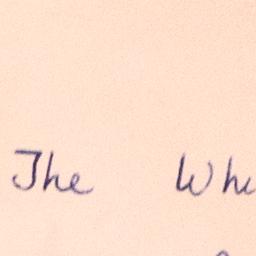 The Whi